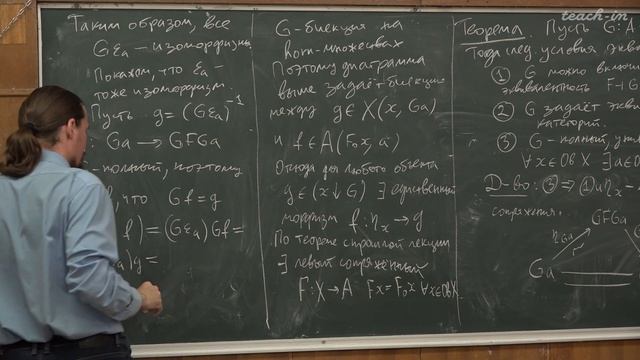 Таким образом, все
Gε_a – изоморфизмы
Покажем, что ε_a –
тоже изоморфизм.
Пусть g = (Gε_a)^{-1}
Ga → GFGa
-полный, поэтому
, что Gf = g
f) = (Gε_a) Gf =
)g =
G-биекция на
hom-множествах
Поэтому диаграмма
выше задаёт биекцию
между g ∈ X(x, Ga)
и f ∈ A(F₀x, a)
Отсюда для любого объекта
g ∈ (x ↓ G) ∃ единственный
морфизм f: η_x → g
По теореме с прошлой лекции
∃ левый сопряжённый
F: X → A Fx = F₀x ∀x ∈ Ob X
teach-in
Теорема Пусть G: A
Тогда след. условия экв
① G можно включи
эквивалентность F ⊣ G
② G задаёт экв
категорий.
③ G - полный, уни
∀x ∈ Ob X ∃ a ∈ Ob
Д-во: ③ ⇒ ① и η_x
сопряжения.
GFGa
η_Ga
Ga